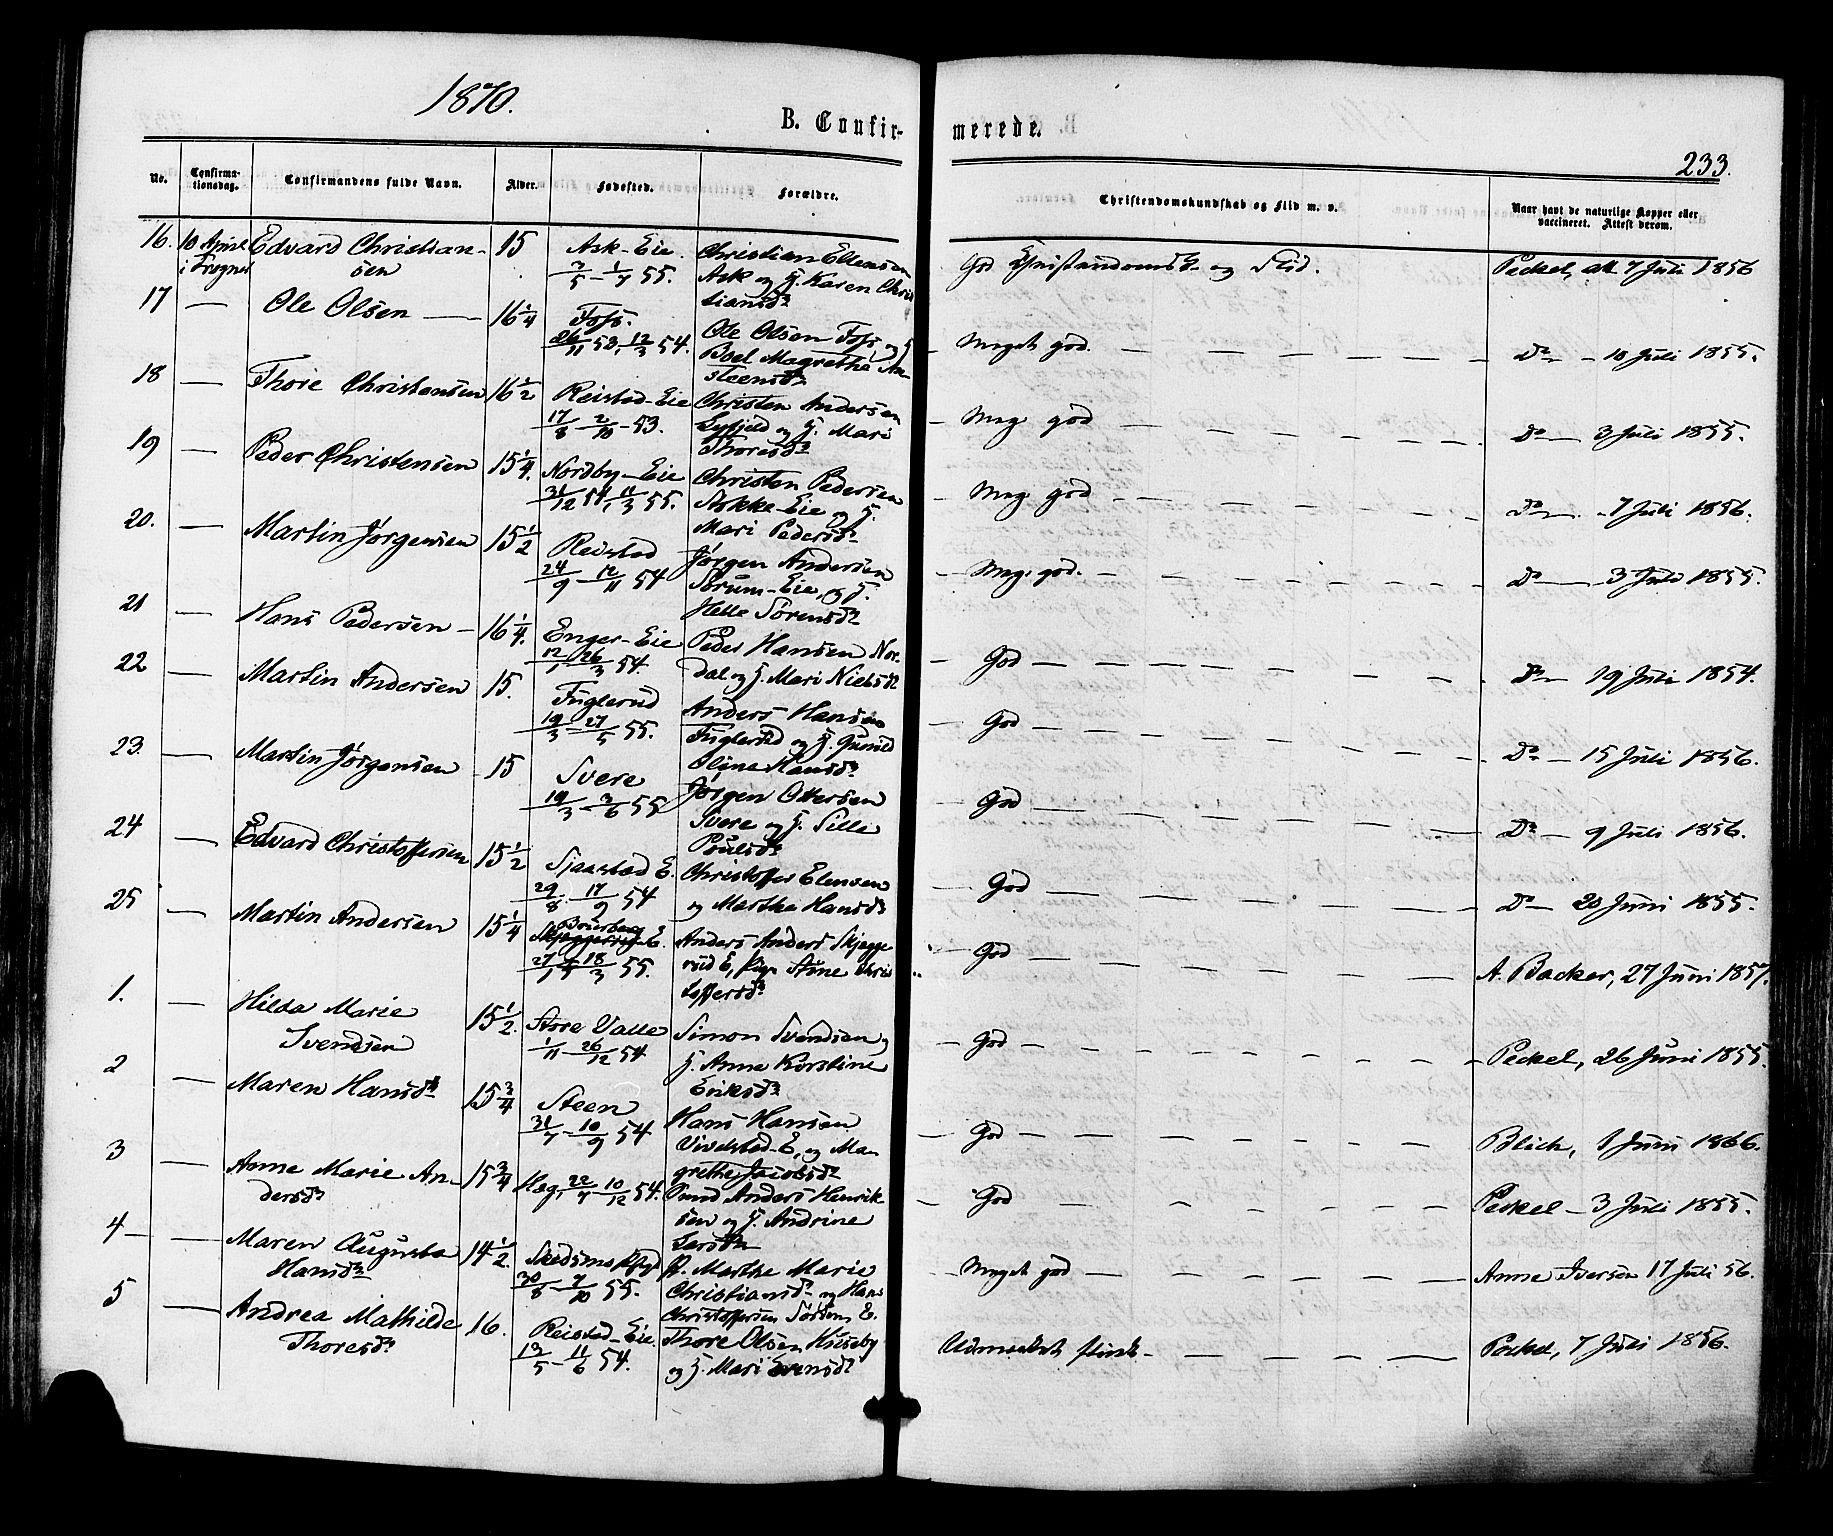 1870.
B. Confirmerede.
233.
No. Confirmationsdag. Confirmandens fulde Navn. Alder. Fødested. Forældre. Christendomskundskab og Flid m. v. Naar havt de naturlige Kopper eller vaccineret. Attest derom.
16. 10 April i Frogner Edvard Christiansen 15 Ask-Eie. 7/5 - 1/7 55. Christian Ellensen Ask og H. Karen Christiansd. God Christendomsk. og Flid. Peckel, att 7 Juli 1856
17 — Ole Olsen — 16 1/4 Foss. 26/11 53, 12/3 54. Ole Olsen Foss og H. Boel Magrethe Ansteensd. — Meget god. Do — 10 Juli 1855.
18 — Thore Christensen 16 1/2 Reistad-Eie 17/8 - 2/10 - 53. Christen Andersen og H. Mari Thoresd. — Meg god Do — 3 Juli 1855.
19 — Peder Christensen 15 1/4. Nordby-Eie 31/12 54, 11/3 55. Christen Pedersen Askke-Eie og H. Mari Pedersd. — Meg god Do — 7 Juli 1856.
20. — Martin Jørgensen 15 1/2 Reistad 24/9 - 12/11 54 Jørgen Andersen Sørum-Eie, og H. Helle Sørensd. — Meg. god. Do — 3 Juli 1855.
21 — Hans Pedersen — 16 1/4. Enger-Eie 12/1 - 26/3 54. Peder Hansen Nordal og H. Mari Nielsd. — God — Do — 19 Juli 1854.
22 — Martin Andersen 15. Fuglerud 19/3 - 27/5 55. Anders Hansen Fuglerud og H. Gunild Oline Hansd. — God — Do — 15 Juli 1856.
23. — Martin Jørgensen — 15 Svere 19/3 - 3/6 55 Jørgen Ottersen Svere og H. Sille Poulsd. — God — Do — 9 Juli 1856.
24 — Edvard Christoffersen 15 1/2 Sjaastad E. 29/8 - 17/9 54 Christoffer Elensen og Marthe Hansd. — God — Do — 20 Juni 1855.
25 — Martin Andersen 15 1/4 E. 27/1 - 18/3 55. Anders Anders Skjeggerud E, Pige Stine Christoffersd. God — A. Backer, 27 Juni 1857.
1. — Hilda Marie Svendsen 15 1/2. Store Valle 1/11 - 26/12 54 Simon Svendsen og H. Anne Kirstine Eriksd. — God — Peckel, 26 Juni 1855.
2 — Maren Hansd. 15 3/4 Steen 31/7 - 10/9 54 Hans Hansen Vivelstad-E, og Magrethe Jacobsd. — God — Blich, 1 Juni 1866.
3 — Anne Marie Andersd. 15 3/4 Hæg, 22/7 - 10/12 54. Anders Henriksen og H. Andrine Larsd. — God — Peckel — 3 Juli 1855.
4 — Maren Augusta Hansd. 14 1/2. Skedsmo 30/8 - 7/10 55. P. Marthe Marie Christiansd. og Hans Christoffersen Sørum, E. — Meget god — Anne Iversen 17 Juli 56.
5 — Andrea Mathilde Thoresd. 16. Reistad-Eie 13/5 - 11/6 54. Thore Olsen Huseby og H. Mari Evensd. Udmærket flink — Peckel, 7 Juli 1856.